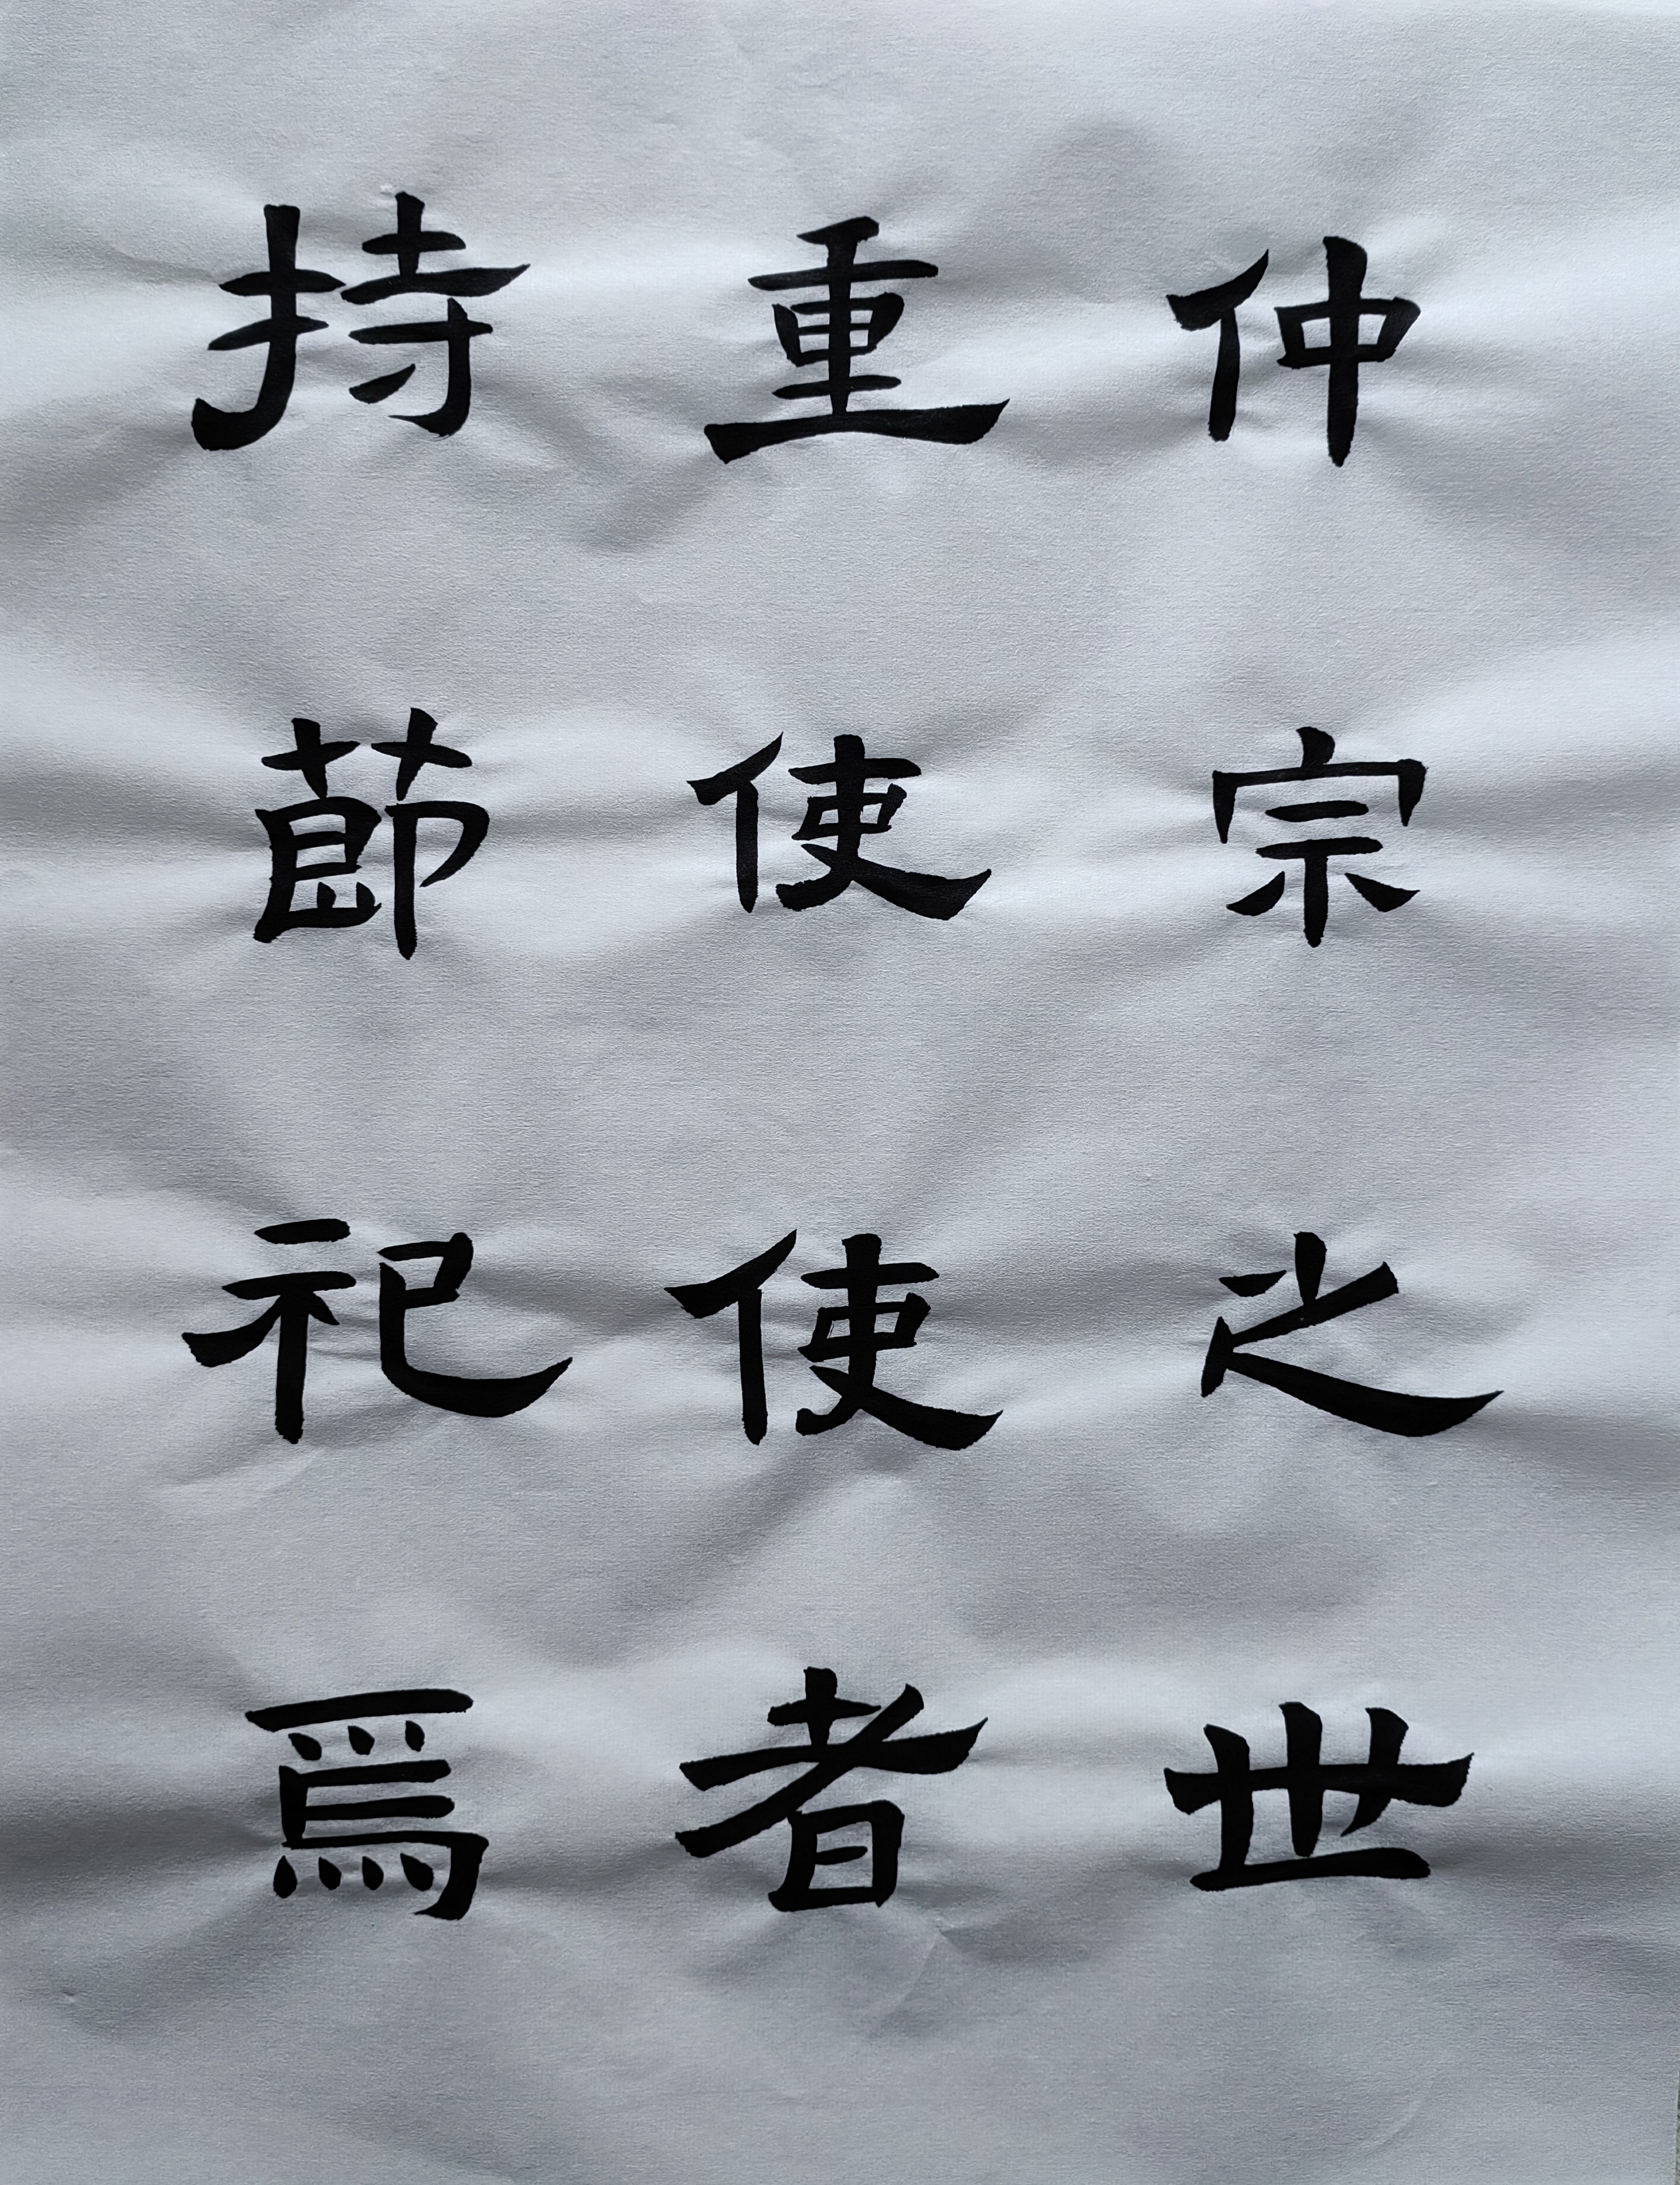 仲宗之世
重使使者
持節祀焉